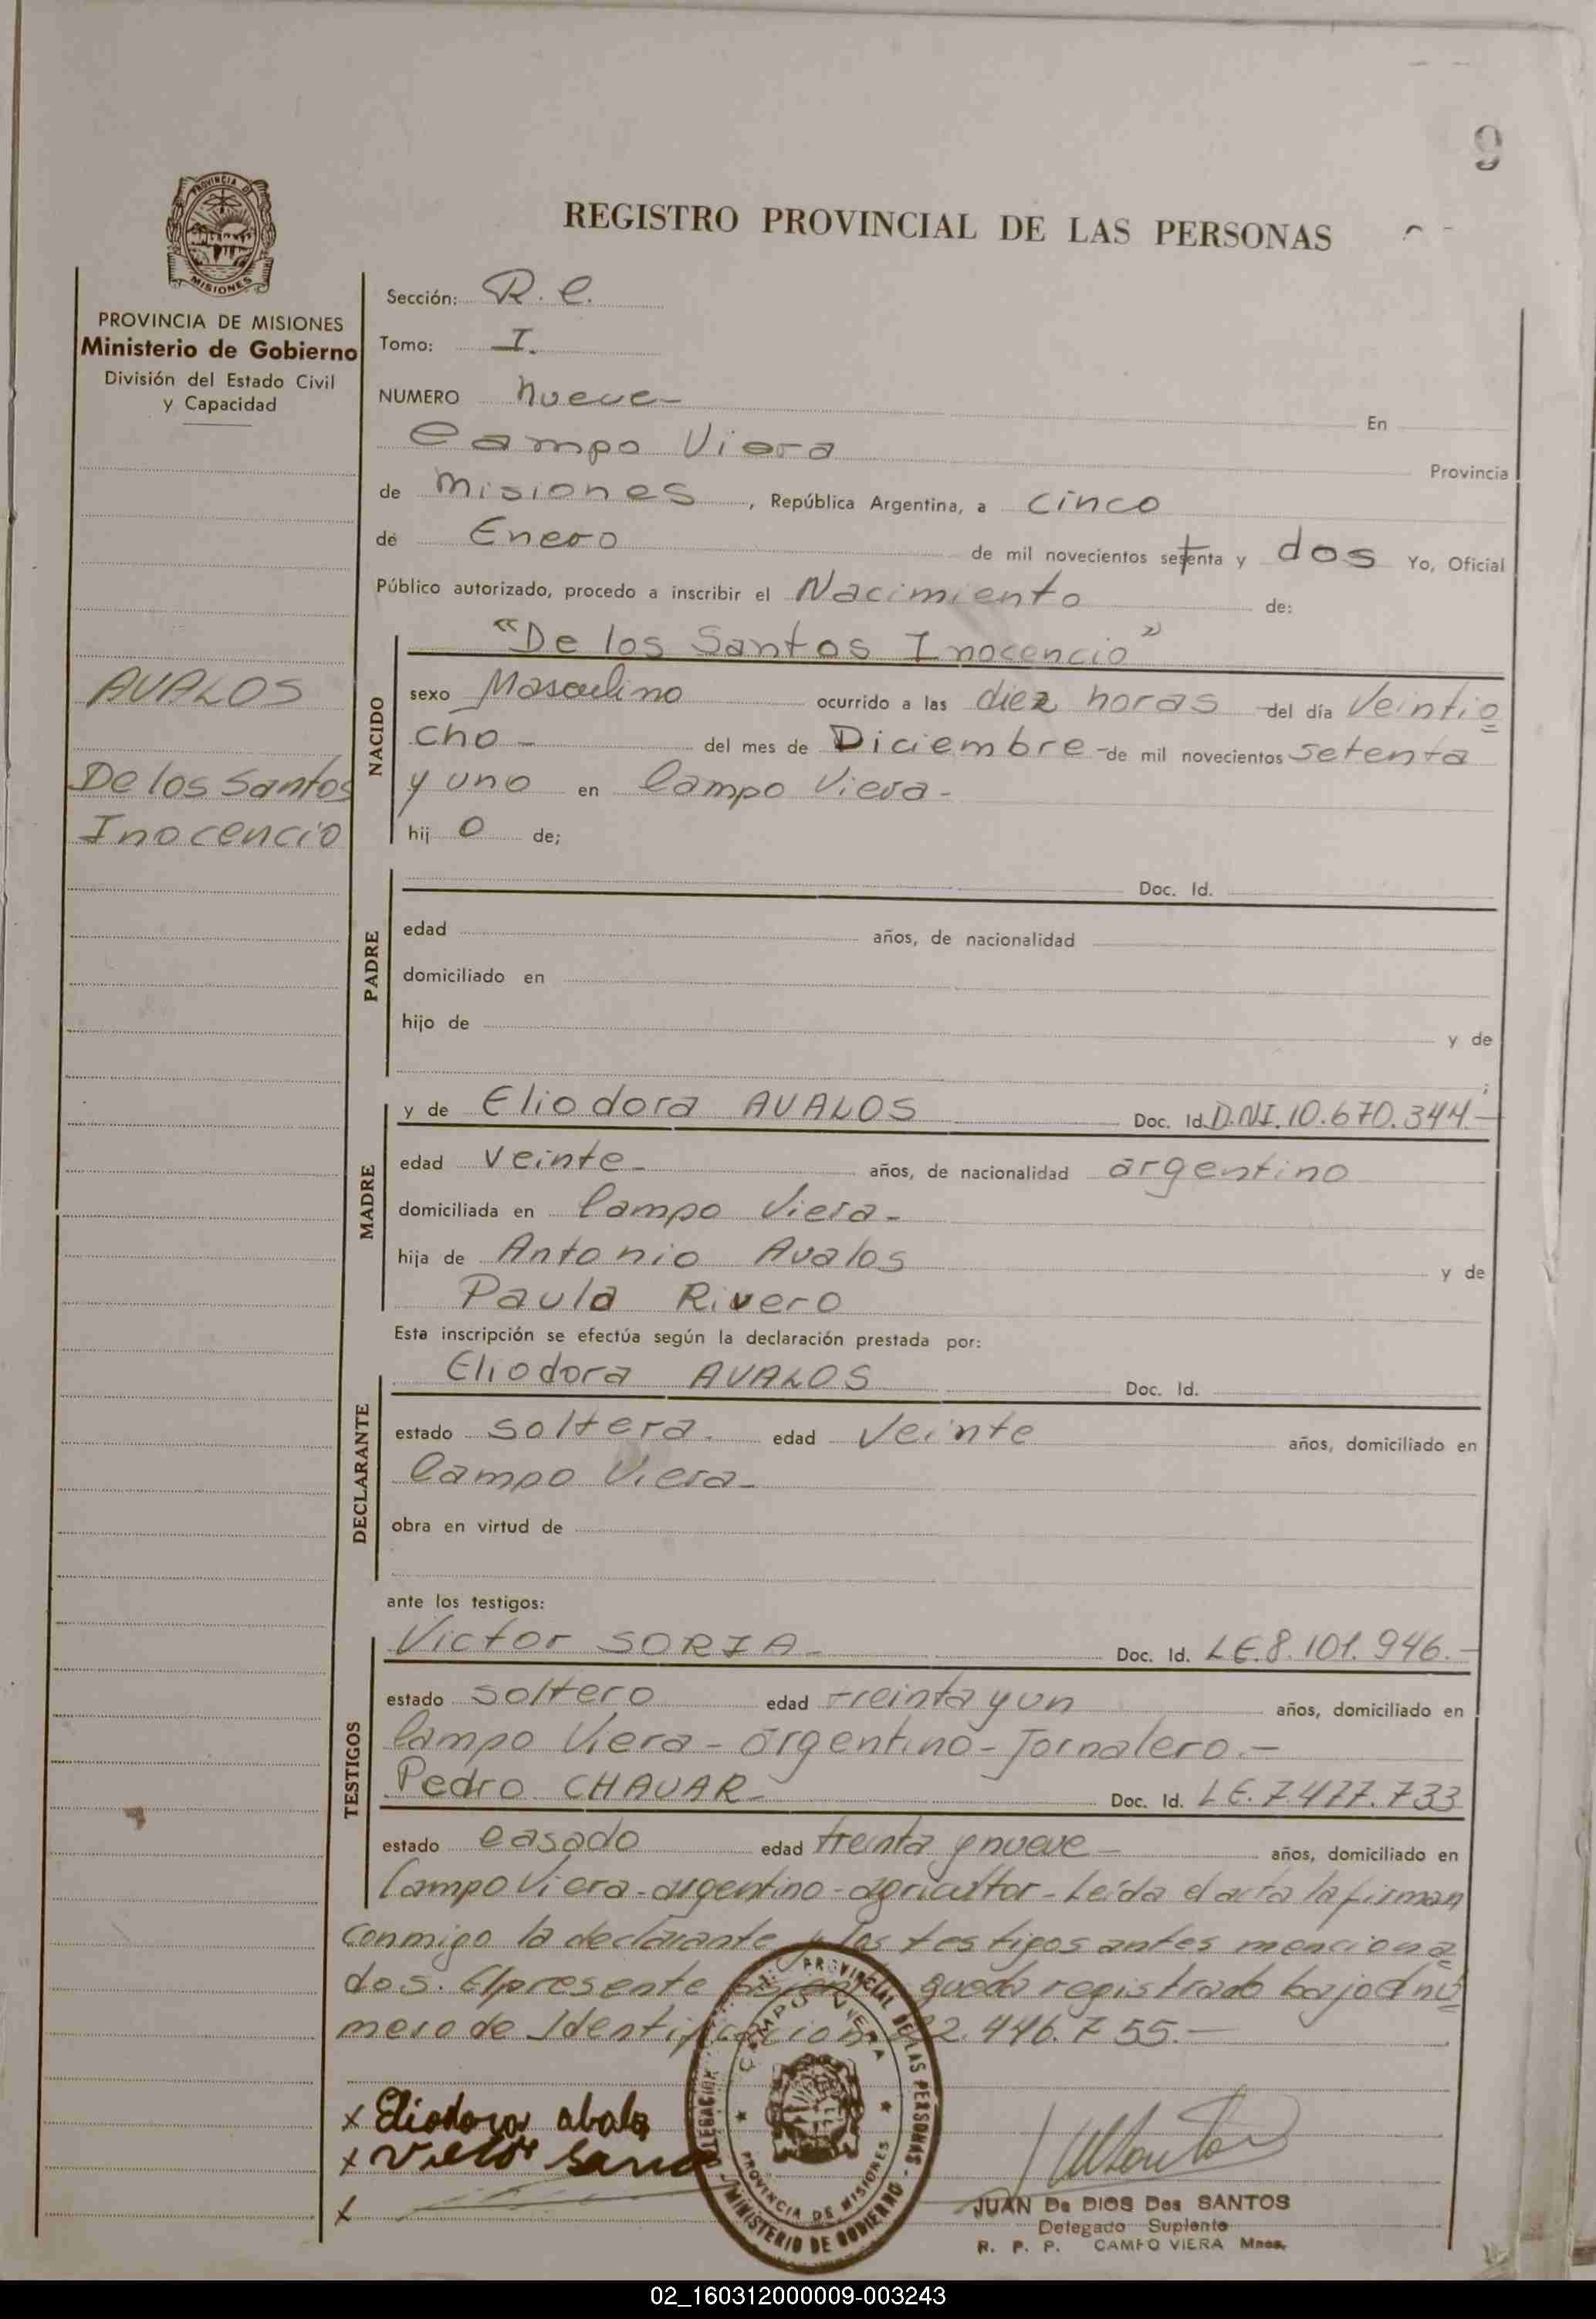 9
REGISTRO PROVINCIAL DE LAS PERSONAS
PROVINCIA DE MISIONES
PROVINCIA DE MISIONES
Ministerio de Gobierno
División del Estado Civil
y Capacidad
AVALOS
De los Santos
Inocencio
Sección: R. C.
Tomo: I.
NUMERO nueve- En
Campo Viera Provincia
de Misiones, República Argentina, a cinco
de Enero de mil novecientos setenta y dos Yo, Oficial
Público autorizado, procedo a inscribir el Nacimiento de:
"De los Santos Inocencio"
NACIDO
sexo Masculino ocurrido a las diez horas del día Veintio
cho - del mes de Diciembre - de mil novecientos setenta
y uno en Campo Viera -
hij o de;
PADRE
Doc. Id.
edad años, de nacionalidad
domiciliado en
hijo de y de
;
MADRE
y de Eliodora AVALOS Doc. Id. D.NI. 10.670.344.-
edad veinte - años, de nacionalidad argentino
domiciliada en Campo Viera -
hija de Antonio Avalos y de
Paula Rivero
Esta inscripción se efectúa según la declaración prestada por:
DECLARANTE
Eliodora AVALOS Doc. Id.
estado soltera. edad Veinte años, domiciliado en
Campo Viera -
obra en virtud de
ante los testigos:
TESTIGOS
Victor SORIA - Doc. Id. LE. 8.101.946.-
estado soltero edad treinta y un años, domiciliado en
Campo Viera - argentino - Jornalero.-
Pedro CHAVAR - Doc. Id. LE. 7.477.733
estado casado edad treinta y nueve - años, domiciliado en
Campo Viera - argentino - agricultor - Leída el acta la firman
conmigo la declarante y los testigos antes menciona
dos. El presente queda registrado bajo el nú
mero de Identificacion 22.446.755.-
x Eliodora abalo
x Victor
x
DELEGACION PROVINCIAL DE LAS PERSONAS - MINISTERIO DE GOBIERNO
CAMPO VIERA
PROVINCIA DE MISIONES
JUAN De DIOS Dos SANTOS
Delegado Suplente
R. P. P. CAMPO VIERA Mnes.
02_160312000009-003243